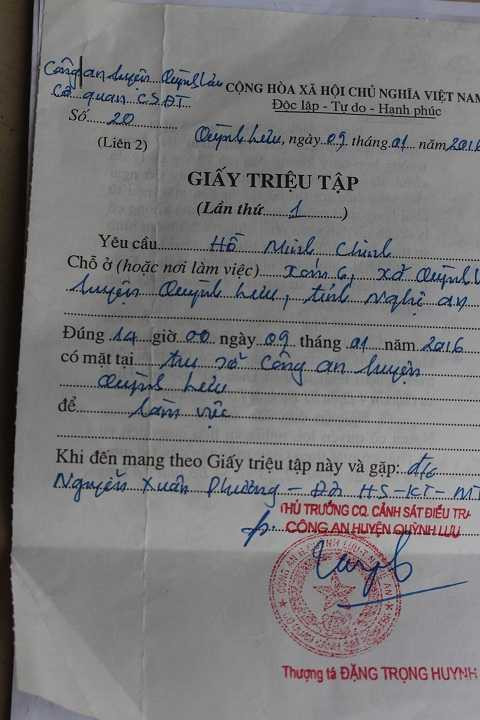 Công an huyện Quỳnh Lưu
CỘNG HÒA XÃ HỘI CHỦ NGHĨA VIỆT NAM
Cơ quan CSĐT
Độc lập - Tự do - Hạnh phúc
Số....20....
(Liên 2)
Quỳnh Lưu, ngày 09 tháng 01 năm 2016
GIẤY TRIỆU TẬP
(Lần thứ....1....)
Yêu cầu....Hồ Minh Chính
Chỗ ở (hoặc nơi làm việc) xóm 6, xã Quỳnh
huyện Quỳnh Lưu, tỉnh Nghệ an
Đúng 14 giờ 00 ngày 09 tháng 01 năm 2016
có mặt tại....trụ sở Công an huyện
Quỳnh Lưu
để....làm việc
Khi đến mang theo Giấy triệu tập này và gặp: đ/c
Nguyễn Xuân Phương - Đội HS-KT-MT
THỦ TRƯỞNG CQ. CẢNH SÁT ĐIỀU TRA
CÔNG AN HUYỆN QUỲNH LƯU
Thượng tá ĐẶNG TRỌNG HUỲNH